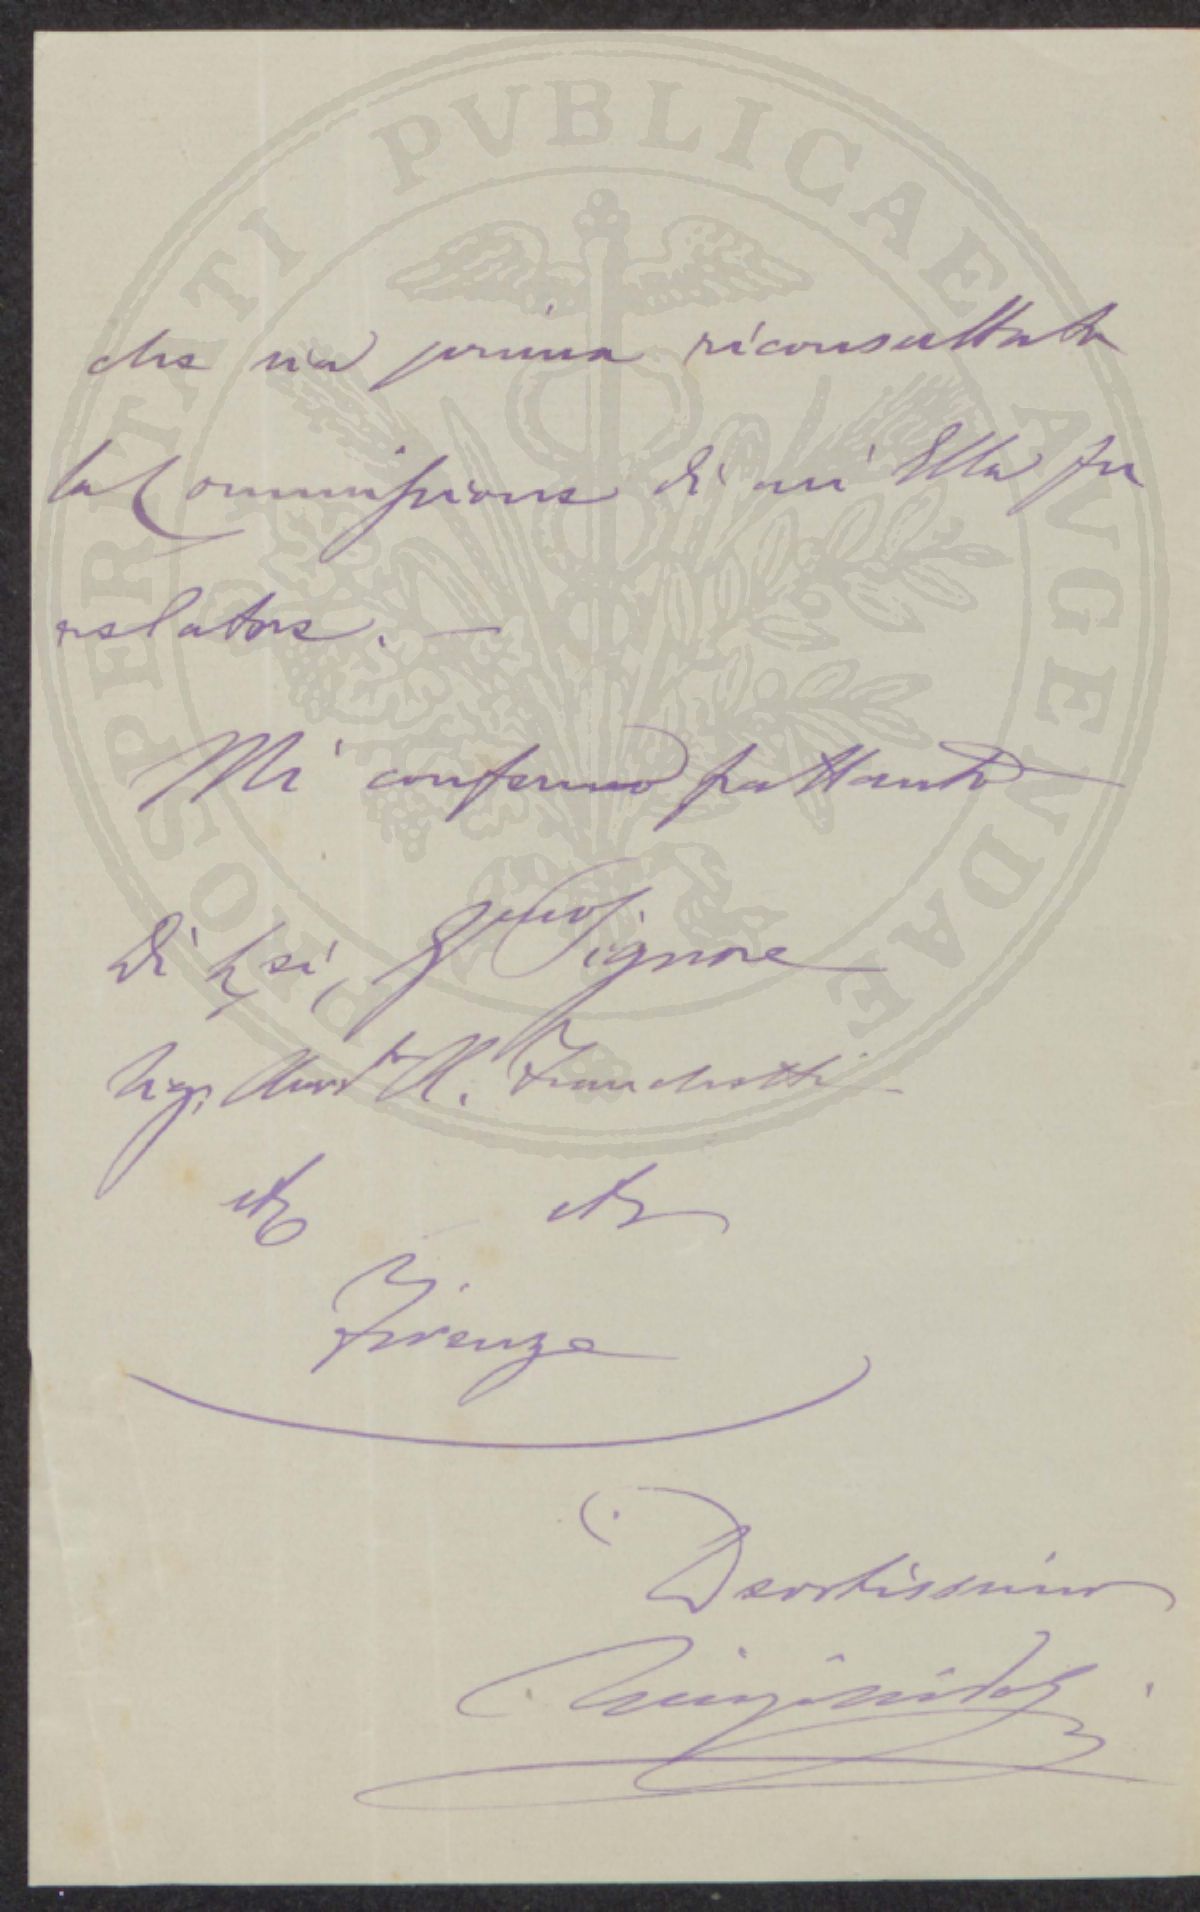 PROSPERITATI PVBLICAE AVGENDAE
che sia prima riconsultata
la Commissione di cui Ella fu
relatore. —
Mi confermo frattanto
Di Lei, Signore
A. Franchetti
etc etc
Firenze
Devotissimo